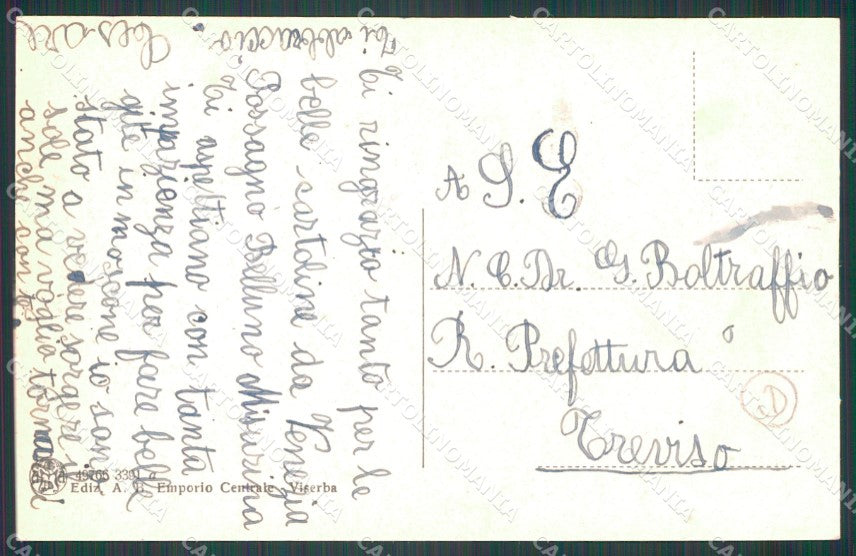 Ti ringrazio tanto per le
belle cartoline da Venezia
Possagno Belluno Misurina
Ti aspettiamo con tanta
impazienza per fare belle
gite in moscone io sono
stato a vedere sorgere il
sole ma voglio tornarci
anche con te
Ti abbraccio
Cesare
A S. E
N. C. Dr. G. Boltraffio
R. Prefettura
Treviso
D
49766 3391
Ediz. A. B. Emporio Centrale - Viserba
CARTOLINOMANIA